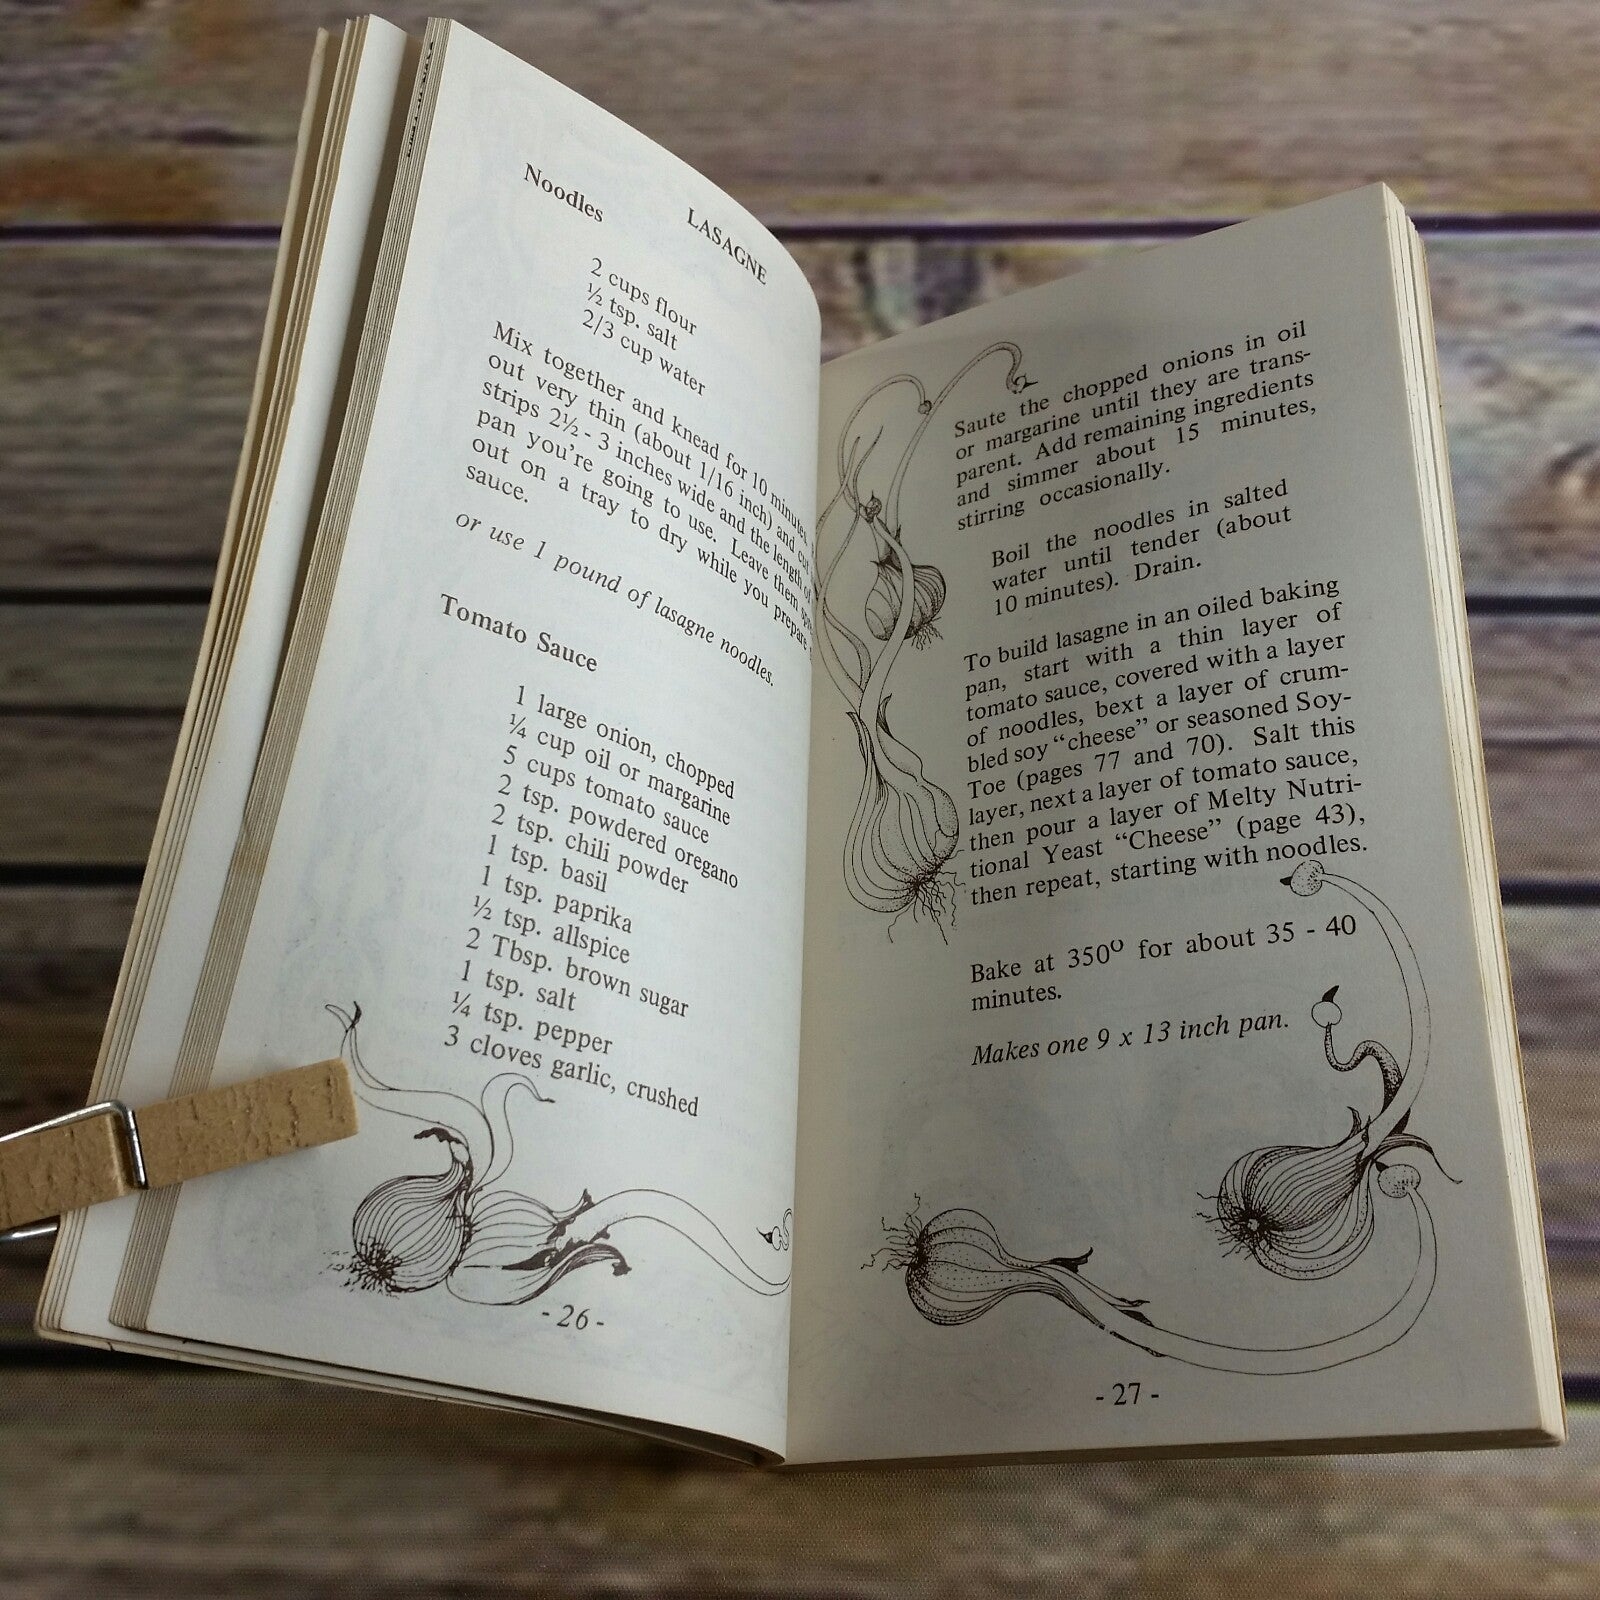 LASAGNE
Noodles
2 cups flour
½ tsp. salt
2/3 cup water
Mix together and knead for 10 minutes.
out very thin (about 1/16 inch) and cut
strips 2½ - 3 inches wide and the length of
pan you're going to use. Leave them
out on a tray to dry while you prepare
sauce.
or use 1 pound of lasagne noodles.
Tomato Sauce
1 large onion, chopped
¼ cup oil or margarine
5 cups tomato sauce
2 tsp. powdered oregano
2 tsp. chili powder
1 tsp. basil
1 tsp. paprika
½ tsp. allspice
2 Tbsp. brown sugar
1 tsp. salt
¼ tsp. pepper
3 cloves garlic, crushed
- 26 -
Saute the chopped onions in oil
or margarine until they are trans-
parent. Add remaining ingredients
and simmer about 15 minutes,
stirring occasionally.
Boil the noodles in salted
water until tender (about
10 minutes). Drain.
To build lasagne in an oiled baking
pan, start with a thin layer of
tomato sauce, covered with a layer
of noodles, bext a layer of crum-
bled soy "cheese" or seasoned Soy-
Toe (pages 77 and 70). Salt this
layer, next a layer of tomato sauce,
then pour a layer of Melty Nutri-
tional Yeast "Cheese" (page 43),
then repeat, starting with noodles.
Bake at 350º for about 35 - 40
minutes.
Makes one 9 x 13 inch pan.
- 27 -